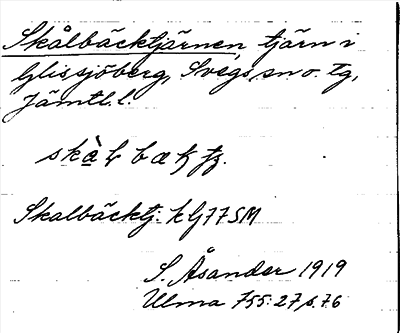 Skålbäcktjärnen, tjärn i
Glissjöberg, Svegs sn o. tg,
Jämtl. l.
Skalbäcktj: k GJ77SM
S. Åsander 1919
Ulma 755:27 s. 76